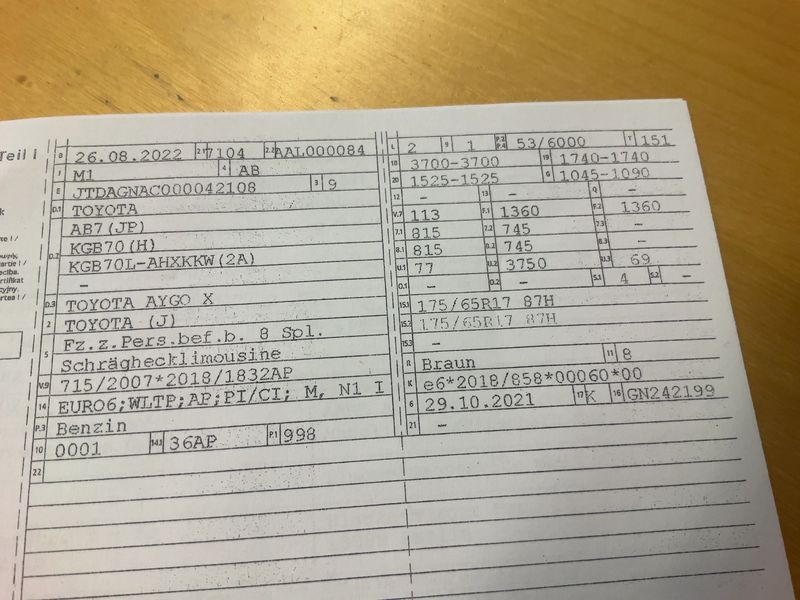 Teil I
B 26.08.2022 2.1 7104 2.2 AAL000084
J M1 4 AB
E JTDAGNAC000042108 3 9
D.1 TOYOTA
AB7(JP)
D.2 KGB70(H)
KGB70L-AHXKKW(2A)
-
D.3 TOYOTA AYGO X
2 TOYOTA (J)
5 Fz.z.Pers.bef.b. 8 Spl.
Schräghecklimousine
V.9 715/2007*2018/1832AP
14 EURO6;WLTP;AP;PI/CI; M, N1 I
P.3 Benzin
10 0001 14.1 36AP P.1 998
22
L 2 9 1 P.2 P.4 53/6000 T 151
18 3700-3700 19 1740-1740
20 1525-1525 G 1045-1090
12 - 13 - Q -
V.7 113 F.1 1360 F.2 1360
7.1 815 7.2 745 7.3 -
8.1 815 8.2 745 8.3 -
U.1 77 U.2 3750 U.3 69
O.1 - O.2 - S.1 4 S.2 -
15.1 175/65R17 87H
15.2 175/65R17 87H
15.3 -
R Braun 11 8
K e6*2018/858*00060*00
6 29.10.2021 17 K 16 GN242199
21 -